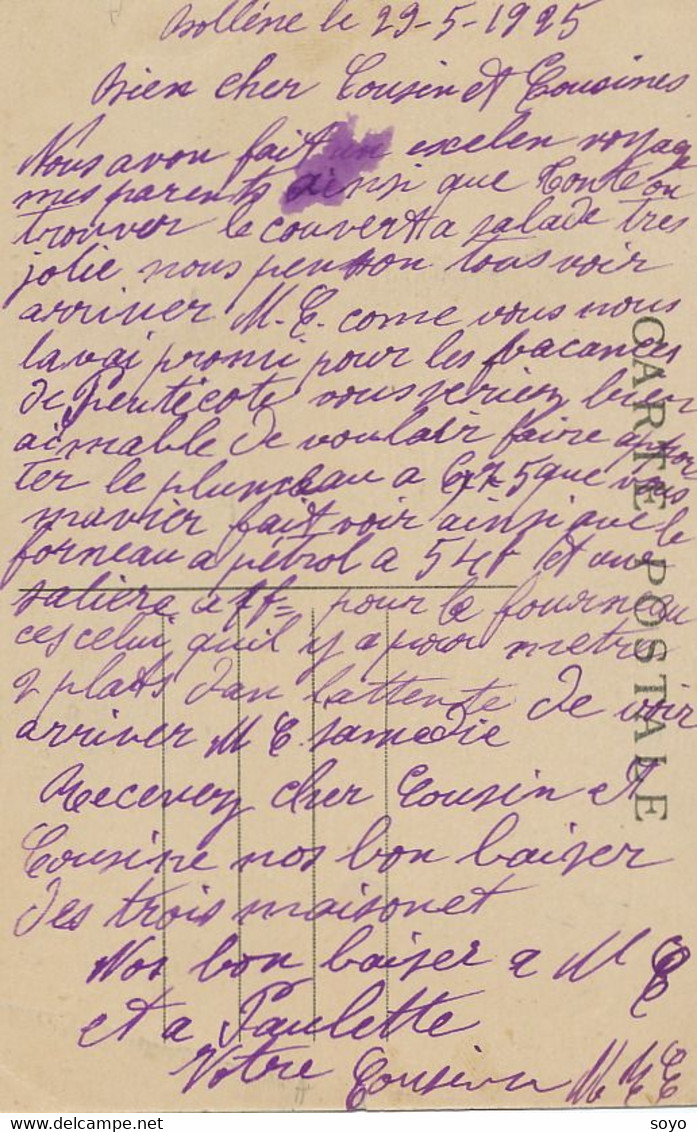 Bollène le 29-5-1925
Bien cher Cousin et Cousines
Nous avon fait un exelen voyage
mes parents ainsi que Tonte on
trouver le couvert a salade tres
jolie nous penson tous voir
arriver M. E. come vous nous
lavai promi pour les vacances
de Pentecote vous serien bien
aimable de voulair faire appor
ter le plumeau a 6,75 que vous
mavier fait voir ainsi que le
forneau a pétrol a 54f et une
salière a ff= pour le fourneau
ces celui quil y a pour metre
2 plats dan lattente de voir
arriver M E samedie
Recevez cher Cousin et
Cousine nos bon baiser
des trois maisonet
Nos bon baiser a M E
et a Paulette
Votre Cousine M E
CARTE POSTALE
soyo